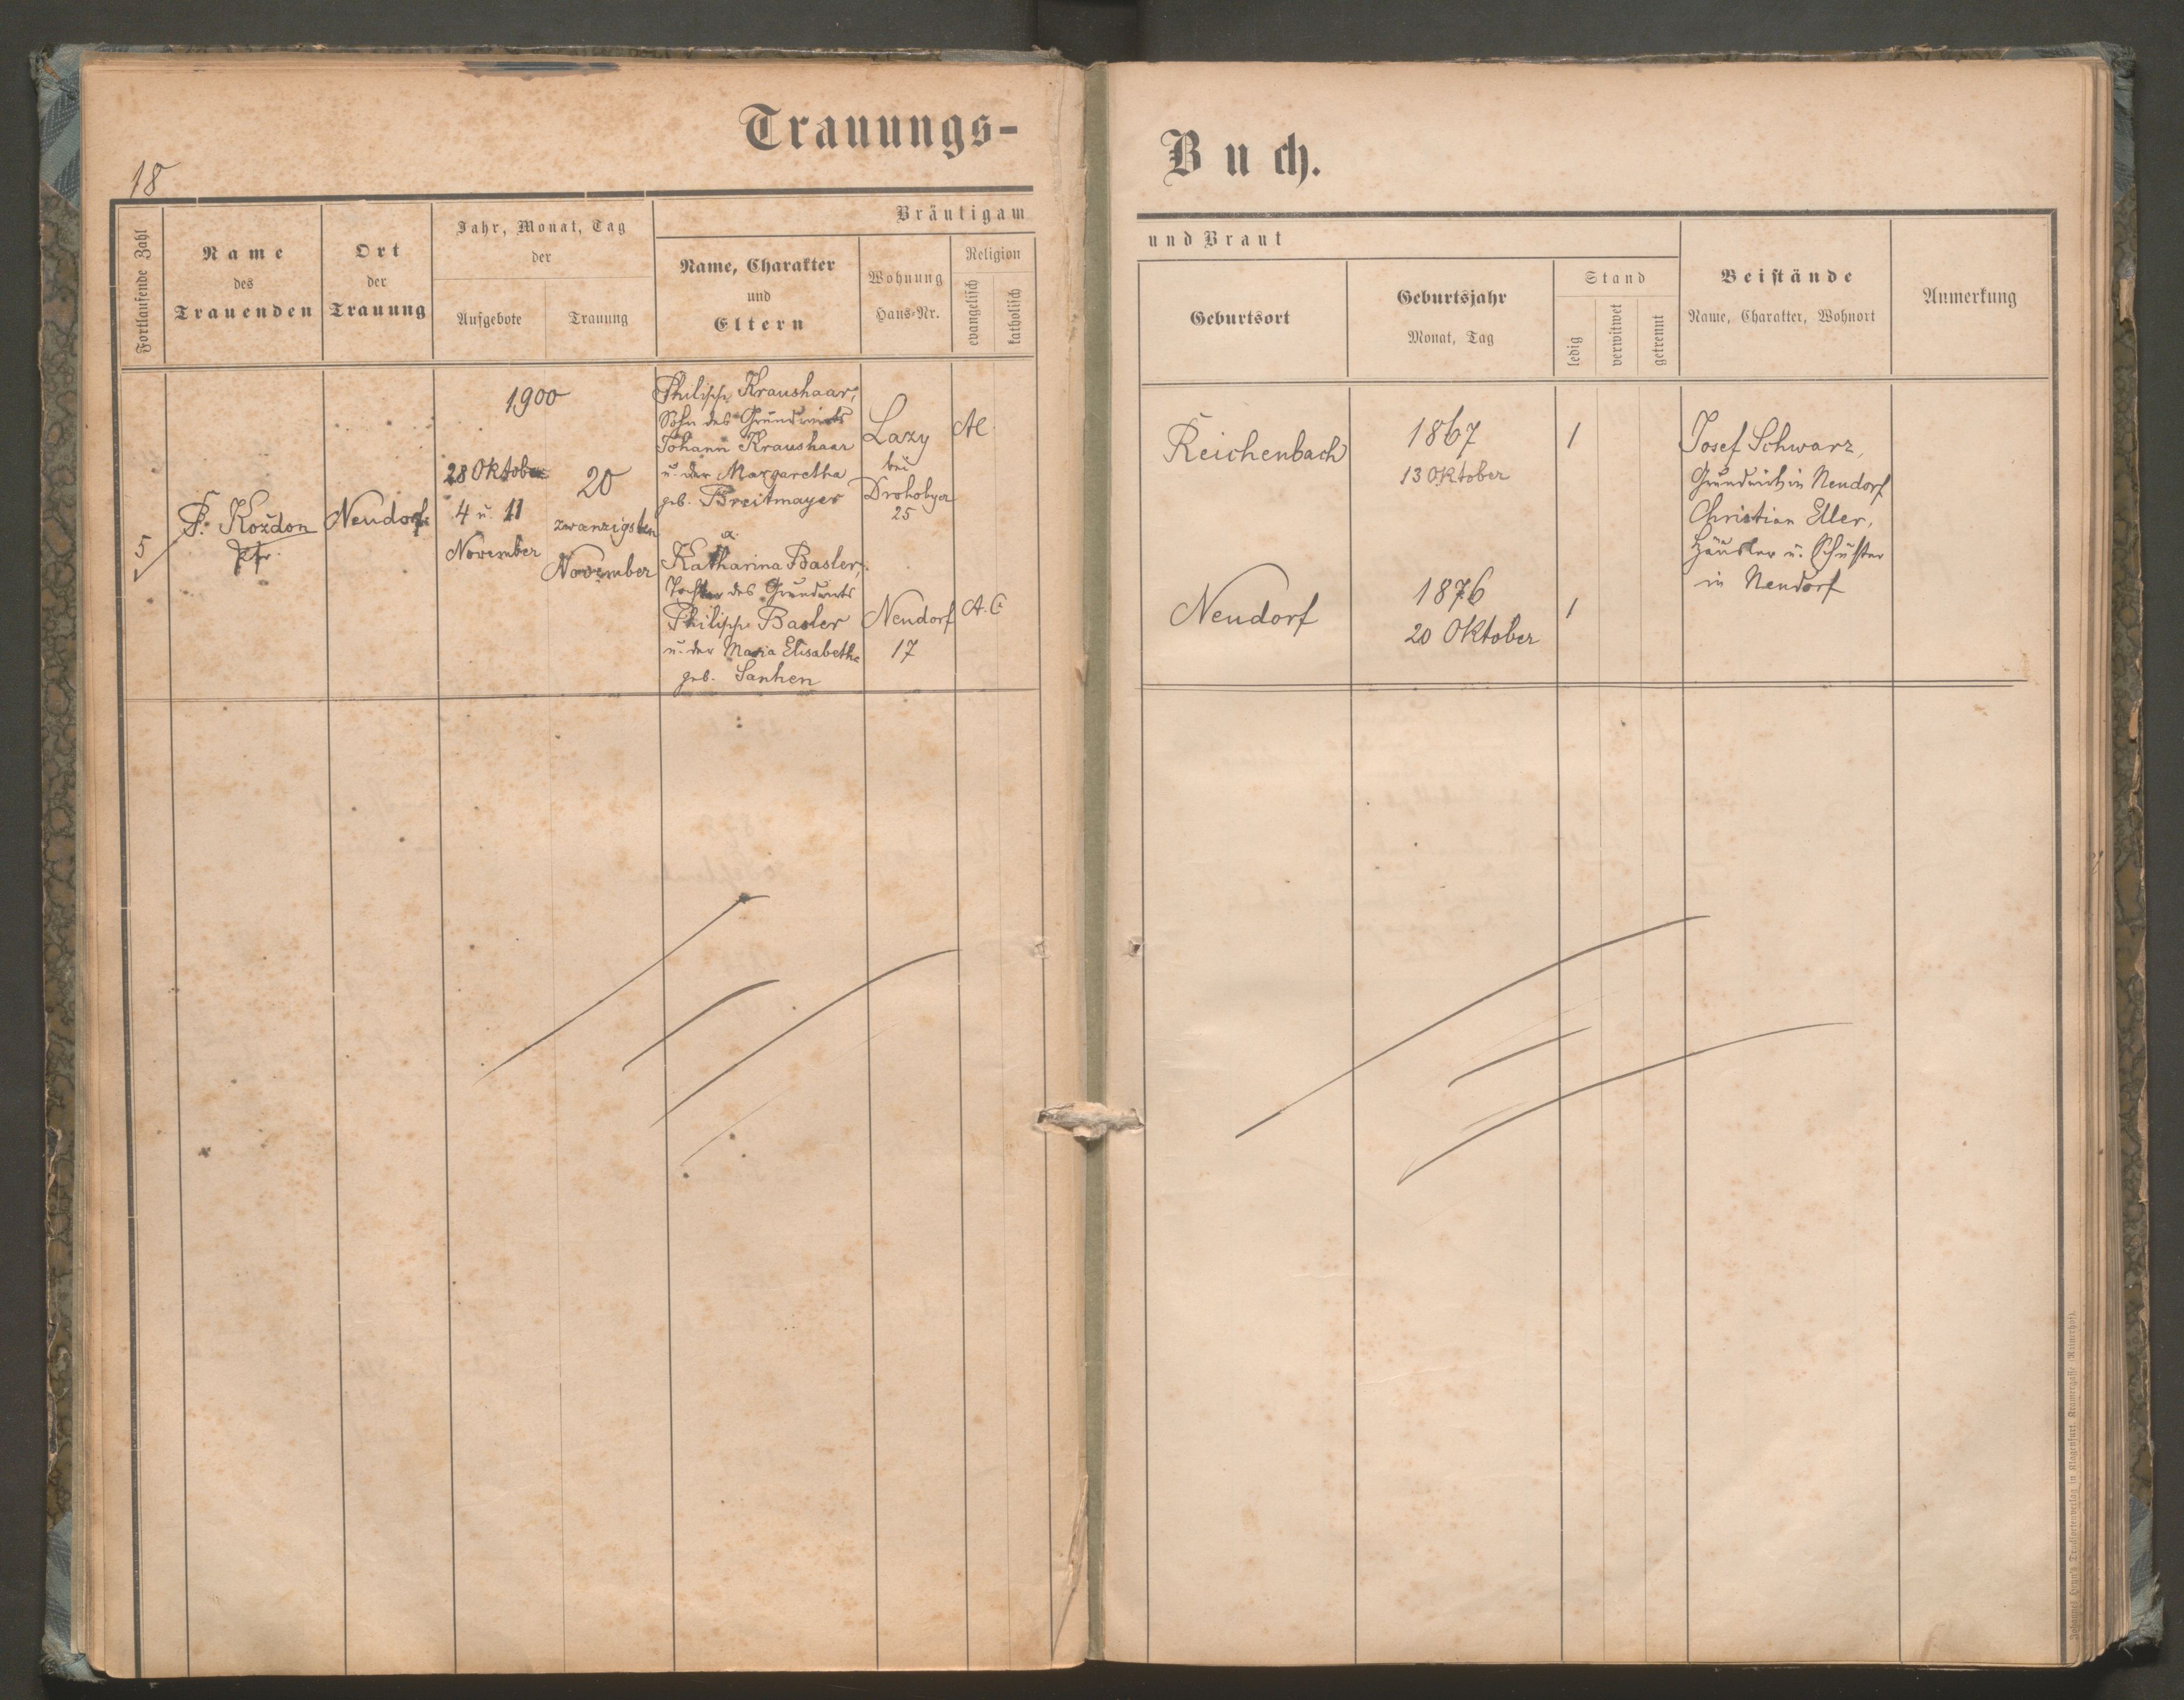 Trauungs-
Buch.
18
Fortlaufende Zahl
Name
des
Trauenden
Ort
der
Trauung
Jahr, Monat, Tag
der
Aufgebote
Trauung
Bräutigam
Name, Charakter
und
Eltern
Wohnung
Haus-Nr.
Religion
evangelisch
katholisch
und Braut
Geburtsort
Geburtsjahr
Monat, Tag
Stand
ledig
verwitwet
getrennt
Beistände
Name, Charakter, Wohnort
Anmerkung
5
F. Koždon
Pfr.
Neudorf
1900
28 Oktober
4 u. 11
November
20
zwanzigsten
November
Philipp Kraushaar,
Sohn des Grundwirts
Johann Kraushaar
u. der Margaretha
geb. Breitmayer
Lazy
bei
Drohobycz
25
AC
Katharina Basler,
Tochter des Grundwirts
Philipp Basler
u. der Maria Elisabetha
geb. Sanhen
Neudorf
17
A.C
Reichenbach
1867
13 Oktober
1
Neudorf
1876
20 Oktober
1
Josef Schwarz,
Grundwirth in Neudorf
Christian Eller,
Häusler u. Schuster
in Neudorf